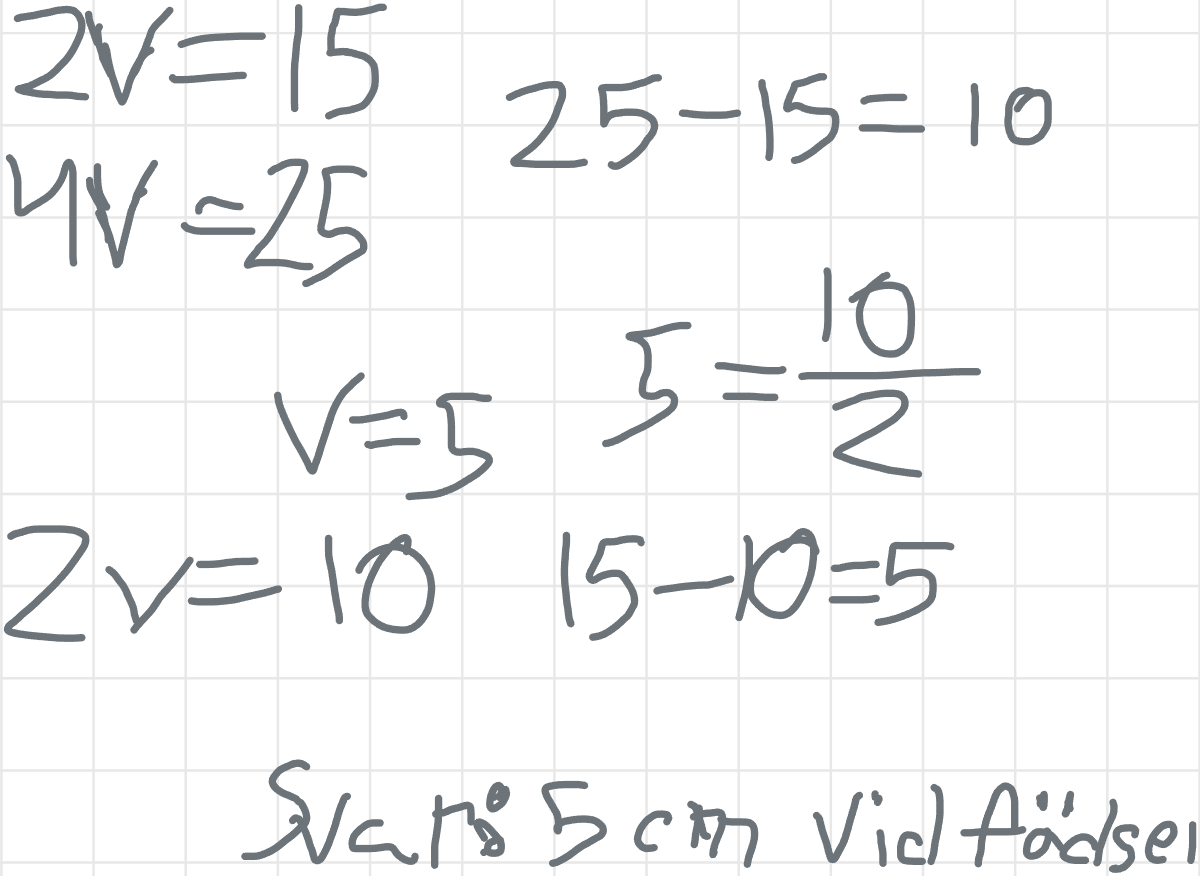 2V=15
25-15=10
4V=25
V=5
5=10/2
2V=10
15-10=5
Svar: 5 cm vid födsel